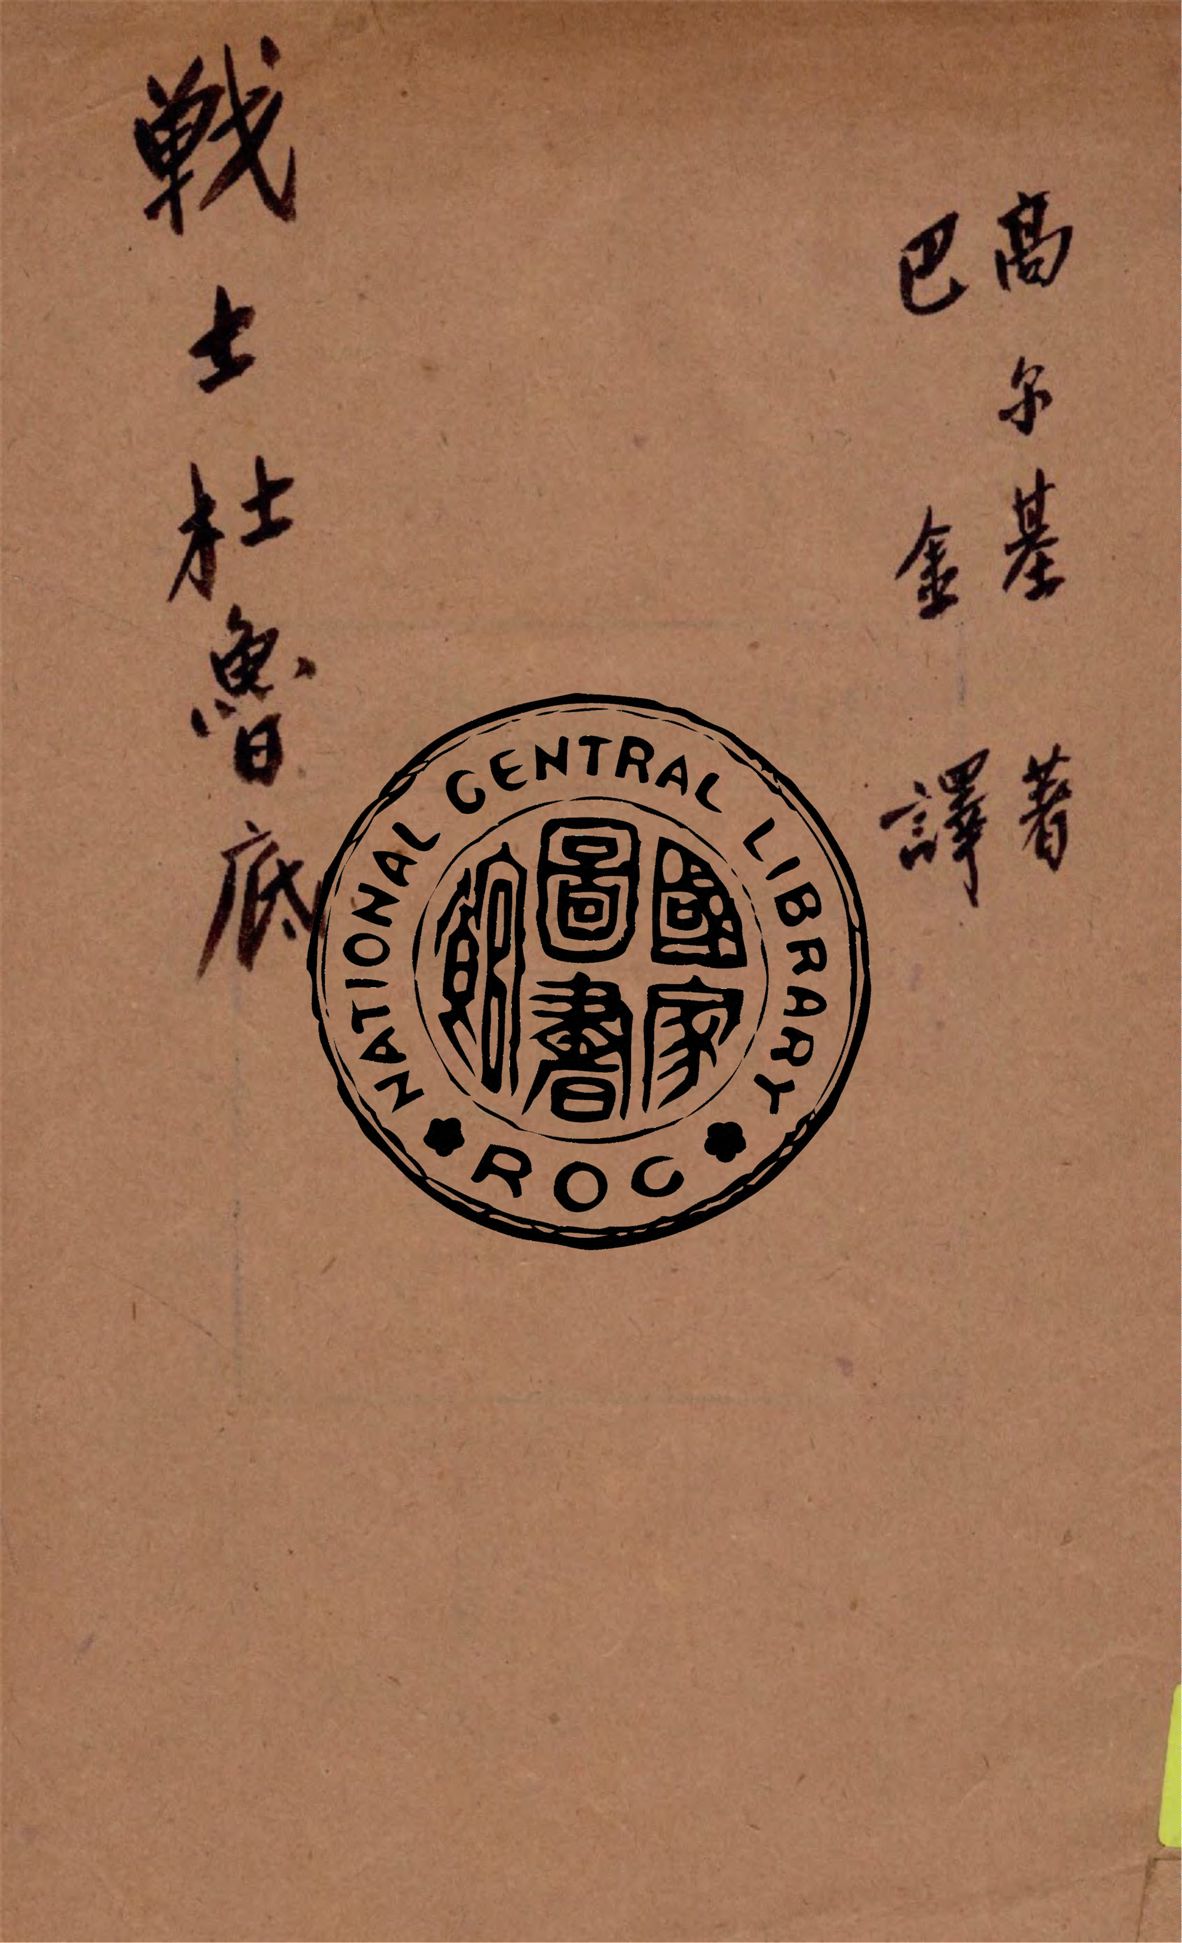 高尔基 著
巴金 譯
戰士杜魯底
NATIONAL CENTRAL LIBRARY
國家
圖書
館
ROC